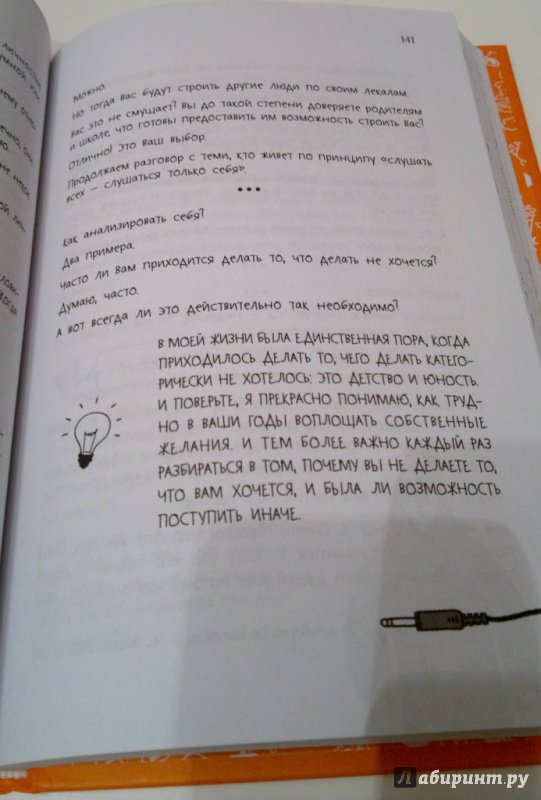 141
личностью
умной, как
чему отно-
ечно, они
мо.
не неко-
ой ли-
лови-
когда
Можно.
Но тогда вас будут строить другие люди по своим лекалам.
Вас это не смущает? Вы до такой степени доверяете родителям
и школе, что готовы предоставить им возможность строить вас?
Отлично! Это ваш выбор.
Продолжаем разговор с теми, кто живет по принципу «слушать
всех — слушаться только себя».
•••
Как анализировать себя?
Два примера.
Часто ли вам приходится делать то, что делать не хочется?
Думаю, часто.
А вот всегда ли это действительно так необходимо?
В МОЕЙ ЖИЗНИ БЫЛА ЕДИНСТВЕННАЯ ПОРА, КОГДА
ПРИХОДИЛОСЬ ДЕЛАТЬ ТО, ЧЕГО ДЕЛАТЬ КАТЕГО-
РИЧЕСКИ НЕ ХОТЕЛОСЬ: ЭТО ДЕТСТВО И ЮНОСТЬ.
И ПОВЕРЬТЕ, Я ПРЕКРАСНО ПОНИМАЮ, КАК ТРУД-
НО В ВАШИ ГОДЫ ВОПЛОЩАТЬ СОБСТВЕННЫЕ
ЖЕЛАНИЯ. И ТЕМ БОЛЕЕ ВАЖНО КАЖДЫЙ РАЗ
РАЗБИРАТЬСЯ В ТОМ, ПОЧЕМУ ВЫ НЕ ДЕЛАЕТЕ ТО,
ЧТО ВАМ ХОЧЕТСЯ, И БЫЛА ЛИ ВОЗМОЖНОСТЬ
ПОСТУПИТЬ ИНАЧЕ.
Лабиринт.ру